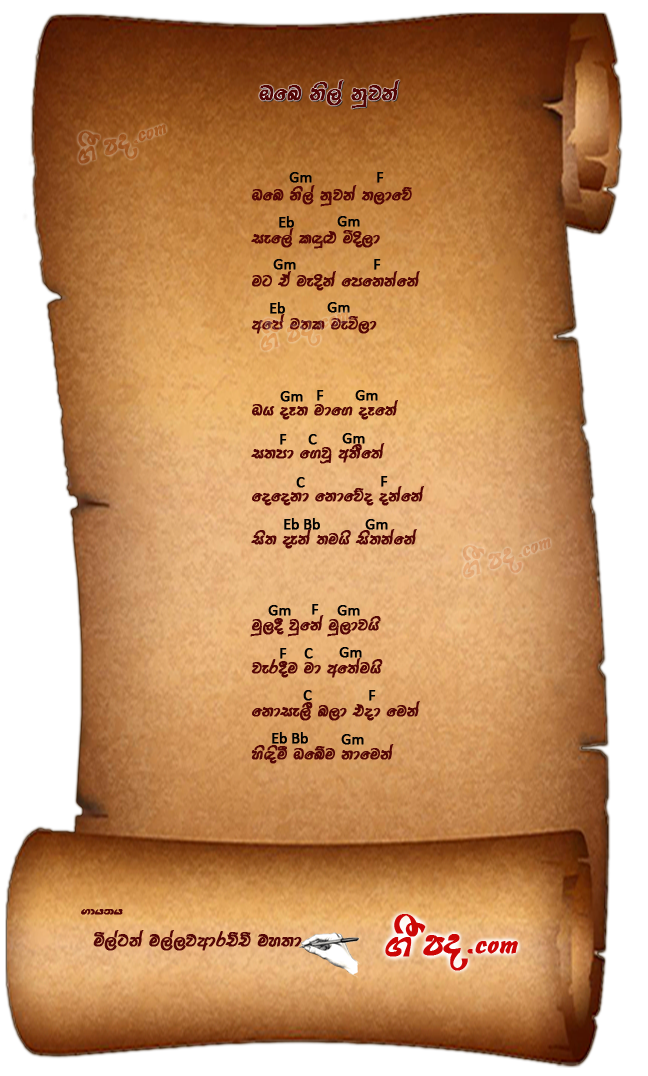 ඔබෙ නිල් නුවන්
ගී පද.com
Gm F
ඔබෙ නිල් නුවන් තලාවේ
Eb Gm
සැලේ කඳුළු මිදිලා
Gm F
මට ඒ මැදින් පෙනෙන්නේ
Eb Gm
අපේ මතක මැවිලා
ගී පද
Gm F Gm
ඔය දෑත මාගෙ දෑතේ
F C Gm
සතපා ගෙවූ අතීතේ
C F
දෙදෙනා නොවේද දන්නේ
Eb Bb Gm
සිත දැන් තමයි සිතන්නේ
ගී පද.com
Gm F Gm
මුලදී වුනේ මුලාවයි
F C Gm
වැරදීම මා අතේමයි
C F
නොසැලී බලා එදා මෙන්
Eb Bb Gm
හිඳිමී ඔබේම නාමෙන්
ගායනය
මිල්ටන් මල්ලවආරච්චි මහතා
ගී පද.com